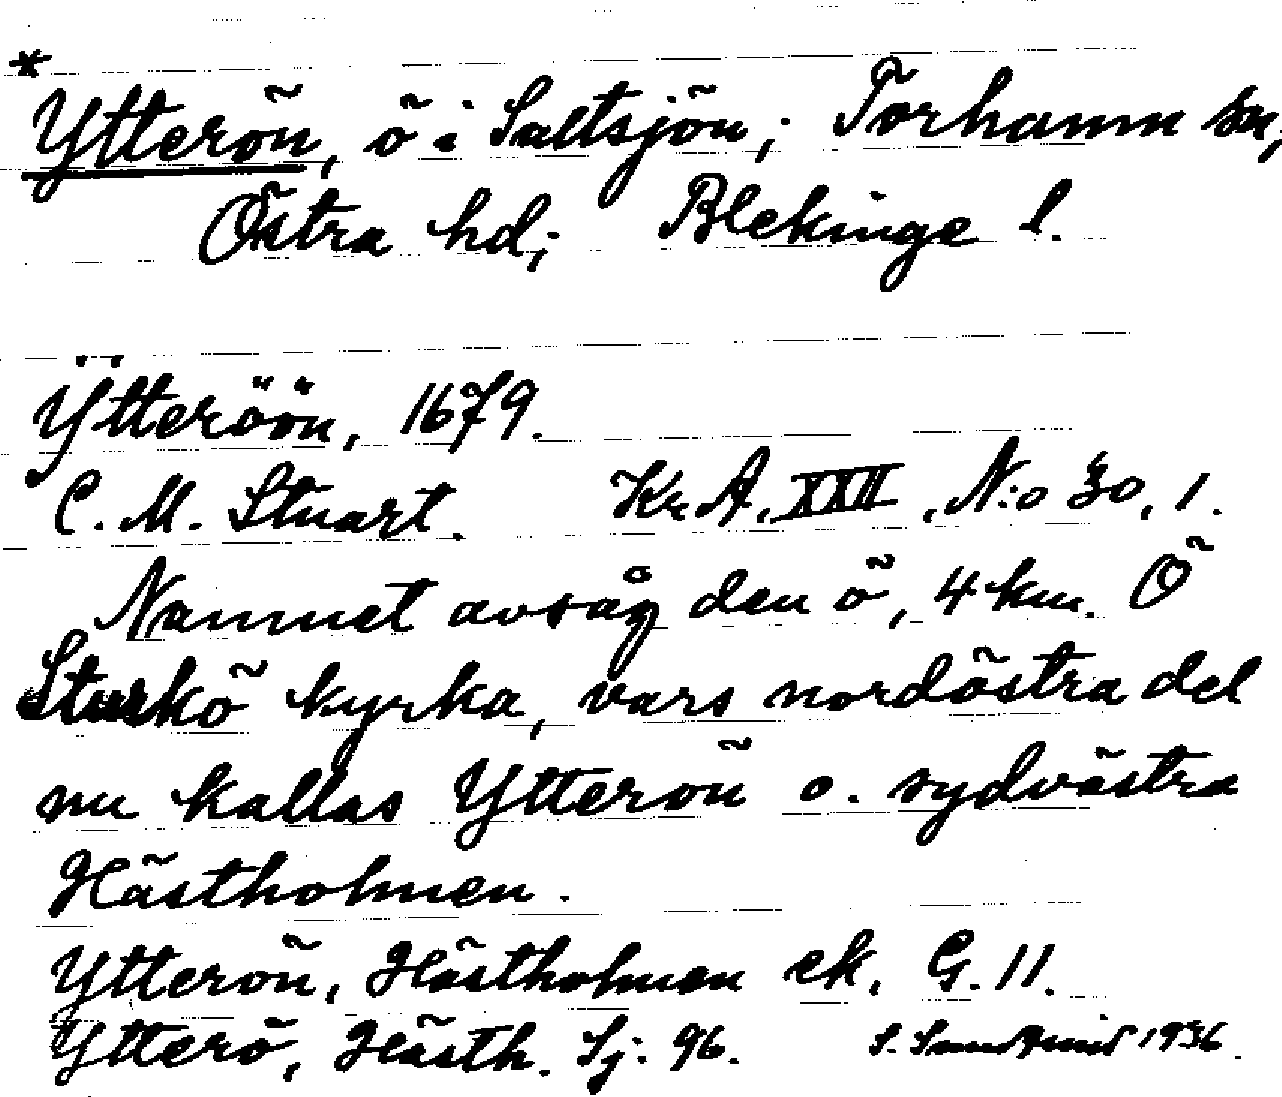 *
Ytterön, ö i Saltsjön; Torhamn sn,
Östra hd; Blekinge l.
Ÿtteröön, 1679.
C. M. Stuart. Kr A, XXII, N:o 30, 1.
Namnet avsåg den ö, 4 km. Ö
Sturkö kyrka, vars nordöstra del
nu kallas Ytterön o. sydvästra
Hästholmen.
Ytterön, Hästholmen ek. G. 11.
Ytterö, Hästh. Sj: 96. S. 1936.